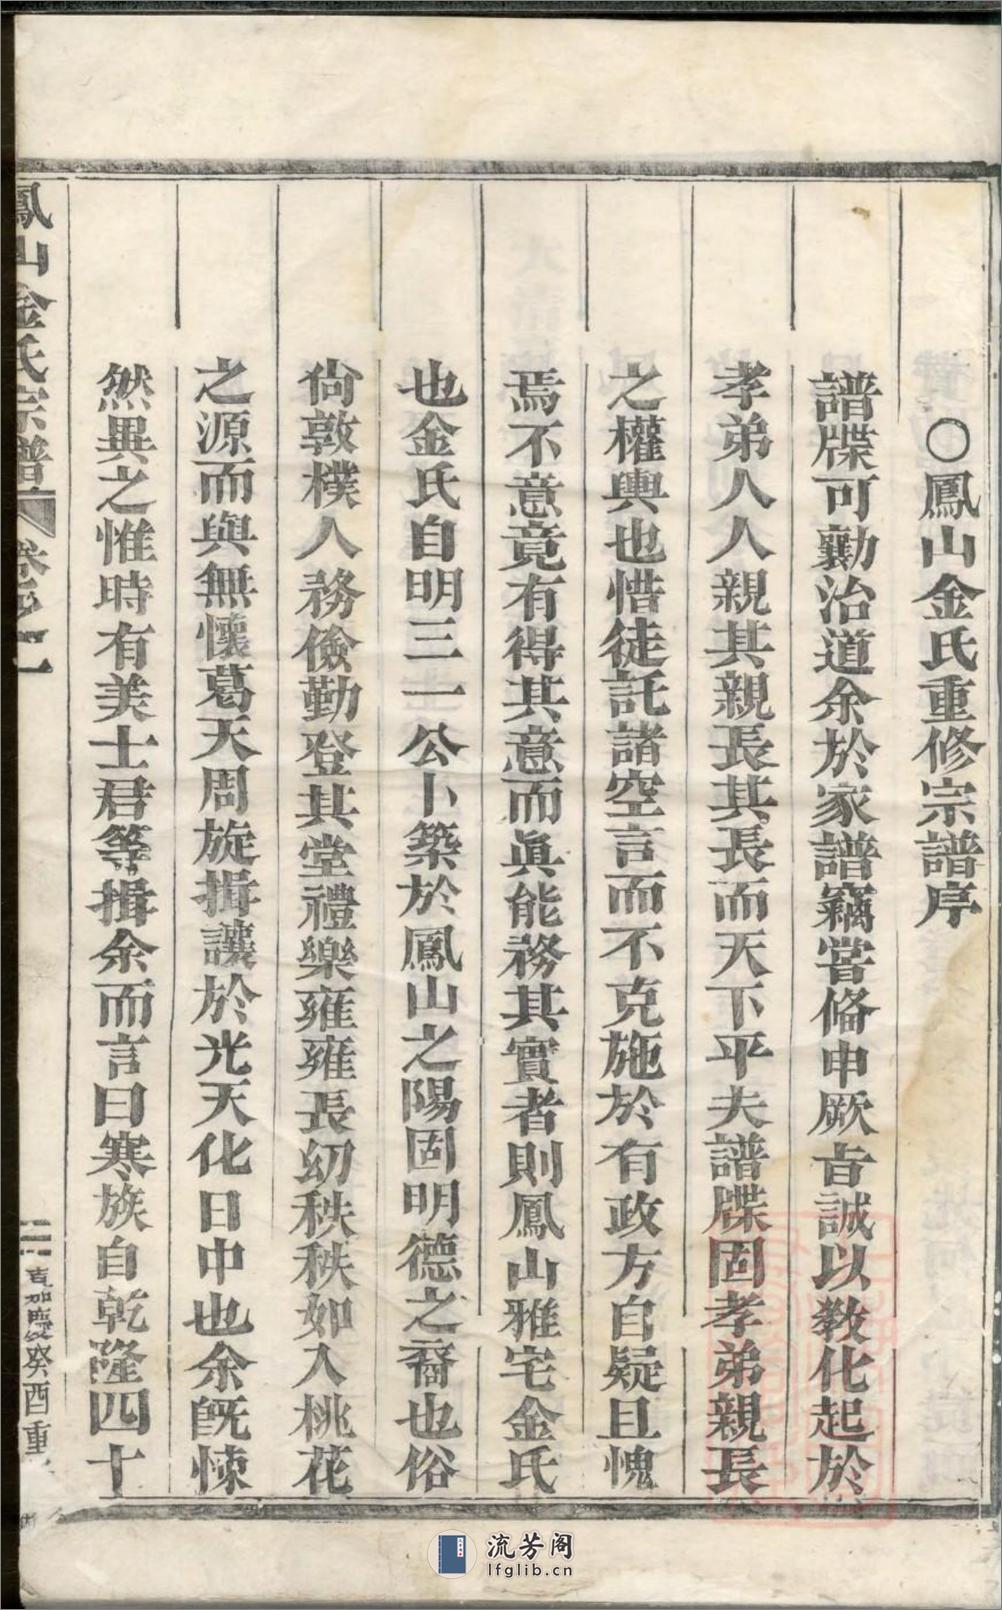 ○鳳山金氏重修宗譜序
譜牒可勷治道余於家譜竊嘗偹申厥㫖誠以敎化起於
孝弟人人親其親長其長而天下平夫譜牒固孝弟親長
之權輿也惜徒託諸空言而不克施於有政方自疑且愧
焉不意竟有得其意而眞能務其實者則鳳山雅宅金氏
也金氏自明三一公卜築於鳳山之陽固明德之裔也俗
尙敦樸人務儉勤登其堂禮樂雍雍長幼秩秩如入桃花
之源而與無懷葛天周旋揖讓於光天化日中也余旣悚
然異之惟時有美士君等揖余而言曰寒族自乾隆四十
鳳山金氏宗譜 卷之一
嘉慶癸酉重
流芳阁
lfglib.cn